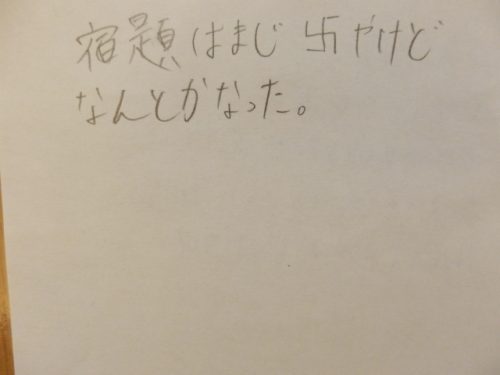 宿題はまじ卐やけど
なんとかなった。